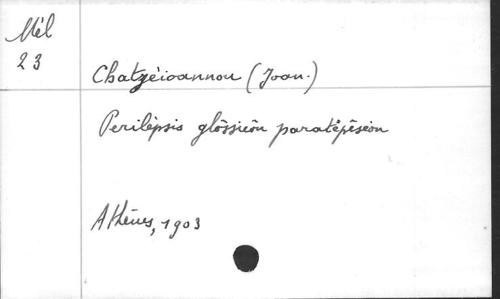 Mél
23
Chatzèioannou (Joan.)
Perilèpsis glôssicôn paratèrèseôn
Athènes, 1903